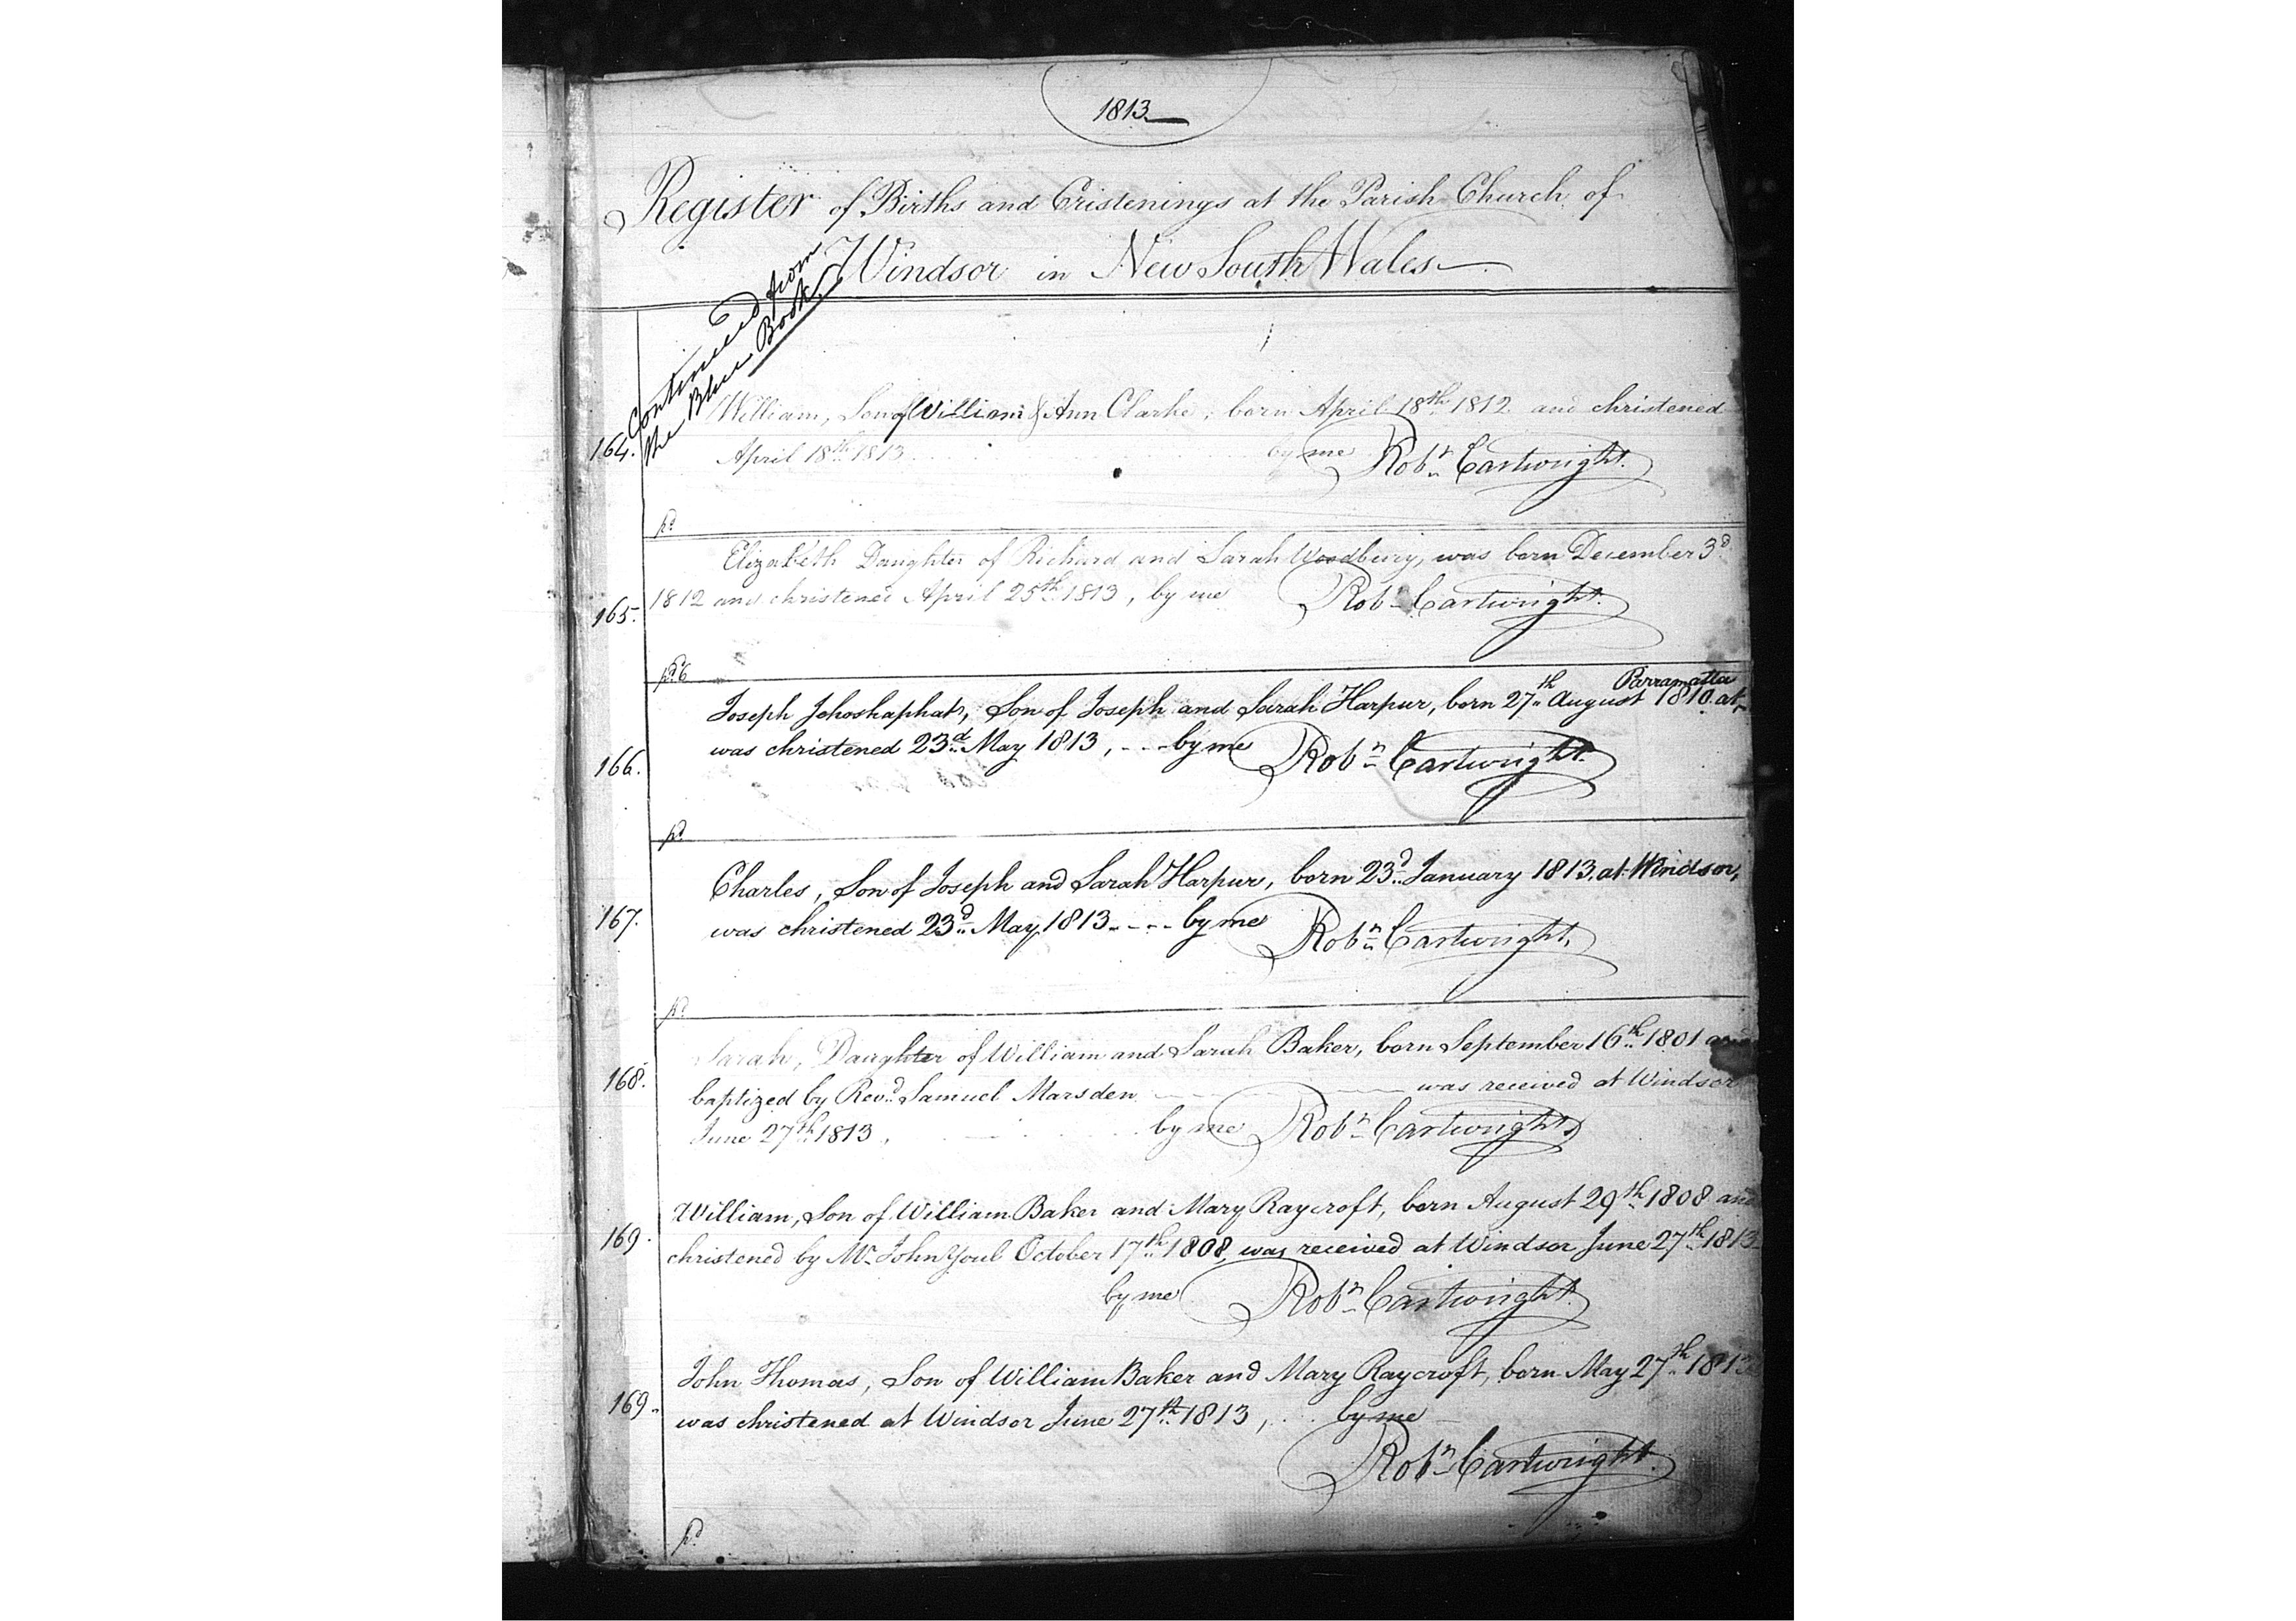 1813
Register of Births and Cristenings at the Parish Church of
Windsor in New South Wales
Continued from
the Blue Book
William, Son of William & Ann Clarke, born April 18th 1812 and christened
164. April 18th 1813 by me Robt Cartwright.
pd
Elizabeth Daughter of Richard and Sarah Woodbury, was born December 3d
165. 1812 and christened April 25th 1813, by me Robt Cartwright.
pd
Parramatta
Joseph Jehoshaphat, Son of Joseph and Sarah Harpur, born 27th August 1810. at
was christened 23d May 1813, --- by me Robt Cartwright.
166.
pd
Charles, Son of Joseph and Sarah Harpur, born 23d January 1813. at Windsor,
167. was christened 23d May 1813 ---- by me Robt Cartwright,
pd
Sarah, Daughter of William and Sarah Baker, born September 16th 1801
168. baptized by Revd Samuel Marsden was received at Windsor
June 27th 1813, by me Robt Cartwright
William, Son of William Baker and Mary Raycroft, born August 29th 1808 and
169. christened by Mr John Youl October 17th 1808, was received at Windsor June 27th 1813
by me Robt Cartwright.
John Thomas, Son of William Baker and Mary Raycroft, born May 27th
169. was christened at Windsor June 27th 1813, by me
Robt Cartwright.
pd